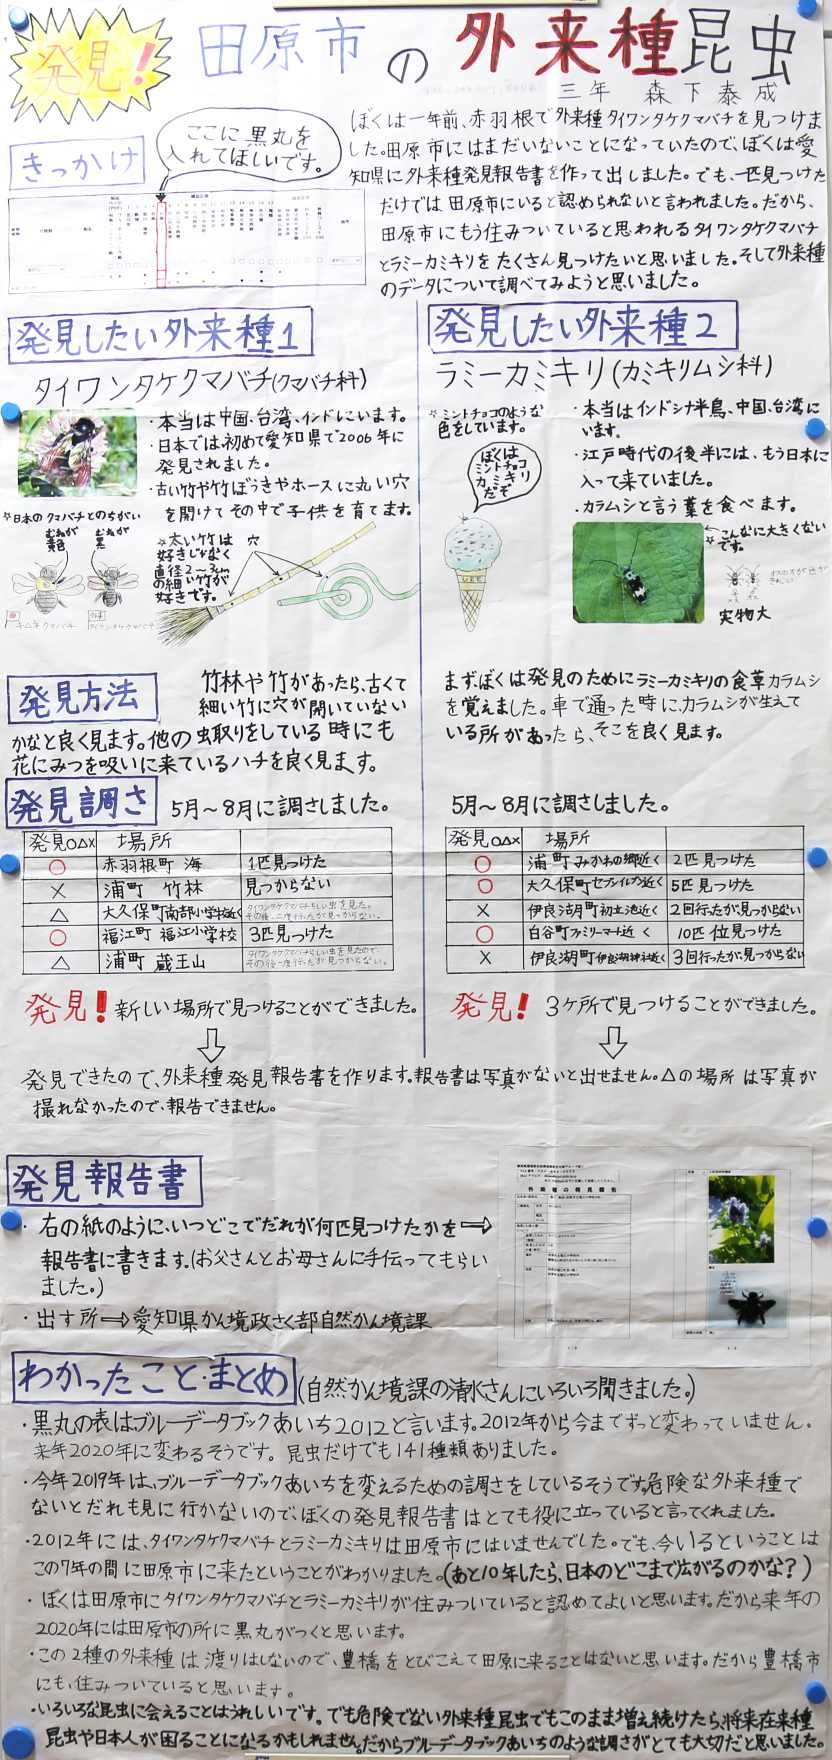 発見!
田原市の外来種昆虫
三年 森下泰成
きっかけ
ここに黒丸を
入れてほしいです。
ぼくは一年前、赤羽根で外来種タイワンタケクマバチを見つけま
した。田原市にはまだいないことになっていたので、ぼくは愛
知県に外来種発見報告書を作って出しました。でも、一匹見つけた
だけでは田原市にいると認められないと言われました。だから、
田原市にもう住みついていると思われるタイワンタケクマバチ
とラミーカミキリをたくさん見つけたいと思いました。そして外来種
のデータについて調べてみようと思いました。
発見したい外来種1
タイワンタケクマバチ(クマバチ科)
・本当は中国、台湾、インドにいます。
・日本では、初めて愛知県で2006年に
発見されました。
・古い竹や竹ぼうきやホースに丸い穴
を開けてその中で子供を育てます。
☆日本のクマバチとのちがい
むねが
黄色
むねが
黒
キムネクマバチ
外来
タイワンタケクマバチ
☆太い竹は
好きじゃなく
直径2〜3cm
の細い竹が
好きです。
穴
発見したい外来種2
ラミーカミキリ(カミキリムシ科)
☆ミントチョコのような
色をしています。
ぼくは
ミントチョコ
カミキリ
だぞ
・本当はインドシナ半島、中国、台湾に
います。
・江戸時代の後半には、もう日本に
入って来ていました。
・カラムシと言う葉を食べます。
☆こんなに大きくない
です。
オスの方が色が
きれい
実物大
発見方法
竹林や竹があったら、古くて
細い竹に穴が開いていない
かなと良く見ます。他の虫取りをしている時にも
花にみつを吸いに来ているハチを良く見ます。
まず、ぼくは発見のためにラミーカミキリの食草カラムシ
を覚えました。車で通った時に、カラムシが生えて
いる所があったら、そこを良く見ます。
発見調さ
5月〜8月に調さしました。
発見○△× 場所
○ 赤羽根町 海 1匹見つけた
× 浦町 竹林 見つからない
△ 大久保町南部小学校近く タイワンタケクマバチらしい虫を見た。
その後、二度行ったが見つからない。
○ 福江町 福江小学校 3匹見つけた
△ 浦町 蔵王山 タイワンタケクマバチらしい虫を見たので、
その後一度行ったが見つからない。
5月〜8月に調さしました。
発見○△× 場所
○ 浦町みかわの郷近く 2匹見つけた
○ 大久保町セブンイレブン近く 5匹見つけた
× 伊良湖町初立池近く 2回行ったが、見つからない
○ 白谷町ファミリーマート近く 10匹位見つけた
× 伊良湖町伊良湖神社近く 3回行ったが、見つからない
発見!新しい場所で見つけることができました。
発見!3ヶ所で見つけることができました。
発見できたので、外来種発見報告書を作ります。報告書は写真がないと出せません。△の場所は写真が
撮れなかったので、報告できません。
発見報告書
・右の紙のように、いつどこでだれが何匹見つけたかを⇒
報告書に書きます。(お父さんとお母さんに手伝ってもらい
ました。)
・出す所⇒愛知県かん境政さく部自然かん境課
外来種の発見報告
わかったこと・まとめ(自然かん境課の清水さんにいろいろ聞きました。)
・黒丸の表はブルーデータブックあいち2012と言います。2012年から今までずっと変わっていません。
来年2020年に変わるそうです。昆虫だけでも141種類ありました。
・今年2019年は、ブルーデータブックあいちを変えるための調さをしているそうです。危険な外来種で
ないとだれも見に行かないので、ぼくの発見報告書はとても役に立っていると言ってくれました。
・2012年には、タイワンタケクマバチとラミーカミキリは田原市にはいませんでした。でも、今いるということは
この7年の間に田原市に来たということがわかりました。(あと10年したら、日本のどこまで広がるのかな?)
・ぼくは田原市にタイワンタケクマバチとラミーカミキリが住みついていると認めてよいと思います。だから来年の
2020年には田原市の所に黒丸がつくと思います。
・この2種の外来種は渡りはしないので、豊橋をとびこえて田原に来ることはないと思います。だから豊橋市
にも、住みついていると思います。
・いろいろな昆虫に会えることはうれしいです。でも危険でない外来種昆虫でもこのまま増え続けたら、将来在来種
昆虫や日本人が困ることになるかもしれません。だからブルーデータブックあいちのような調さがとても大切だと思いました。